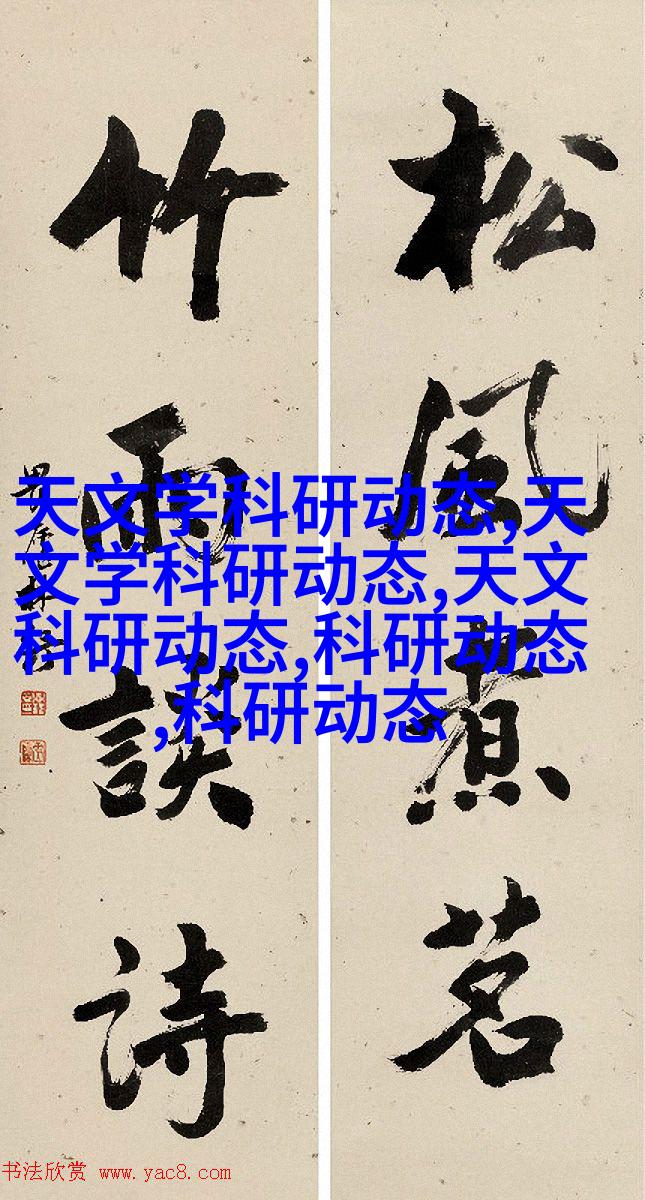 松風煮茗
竹雨談詩
天文学科研动态,天
文学科研动态,天文
科研动态,科研动态
,科研动态
书法欣赏 www.yac8.com